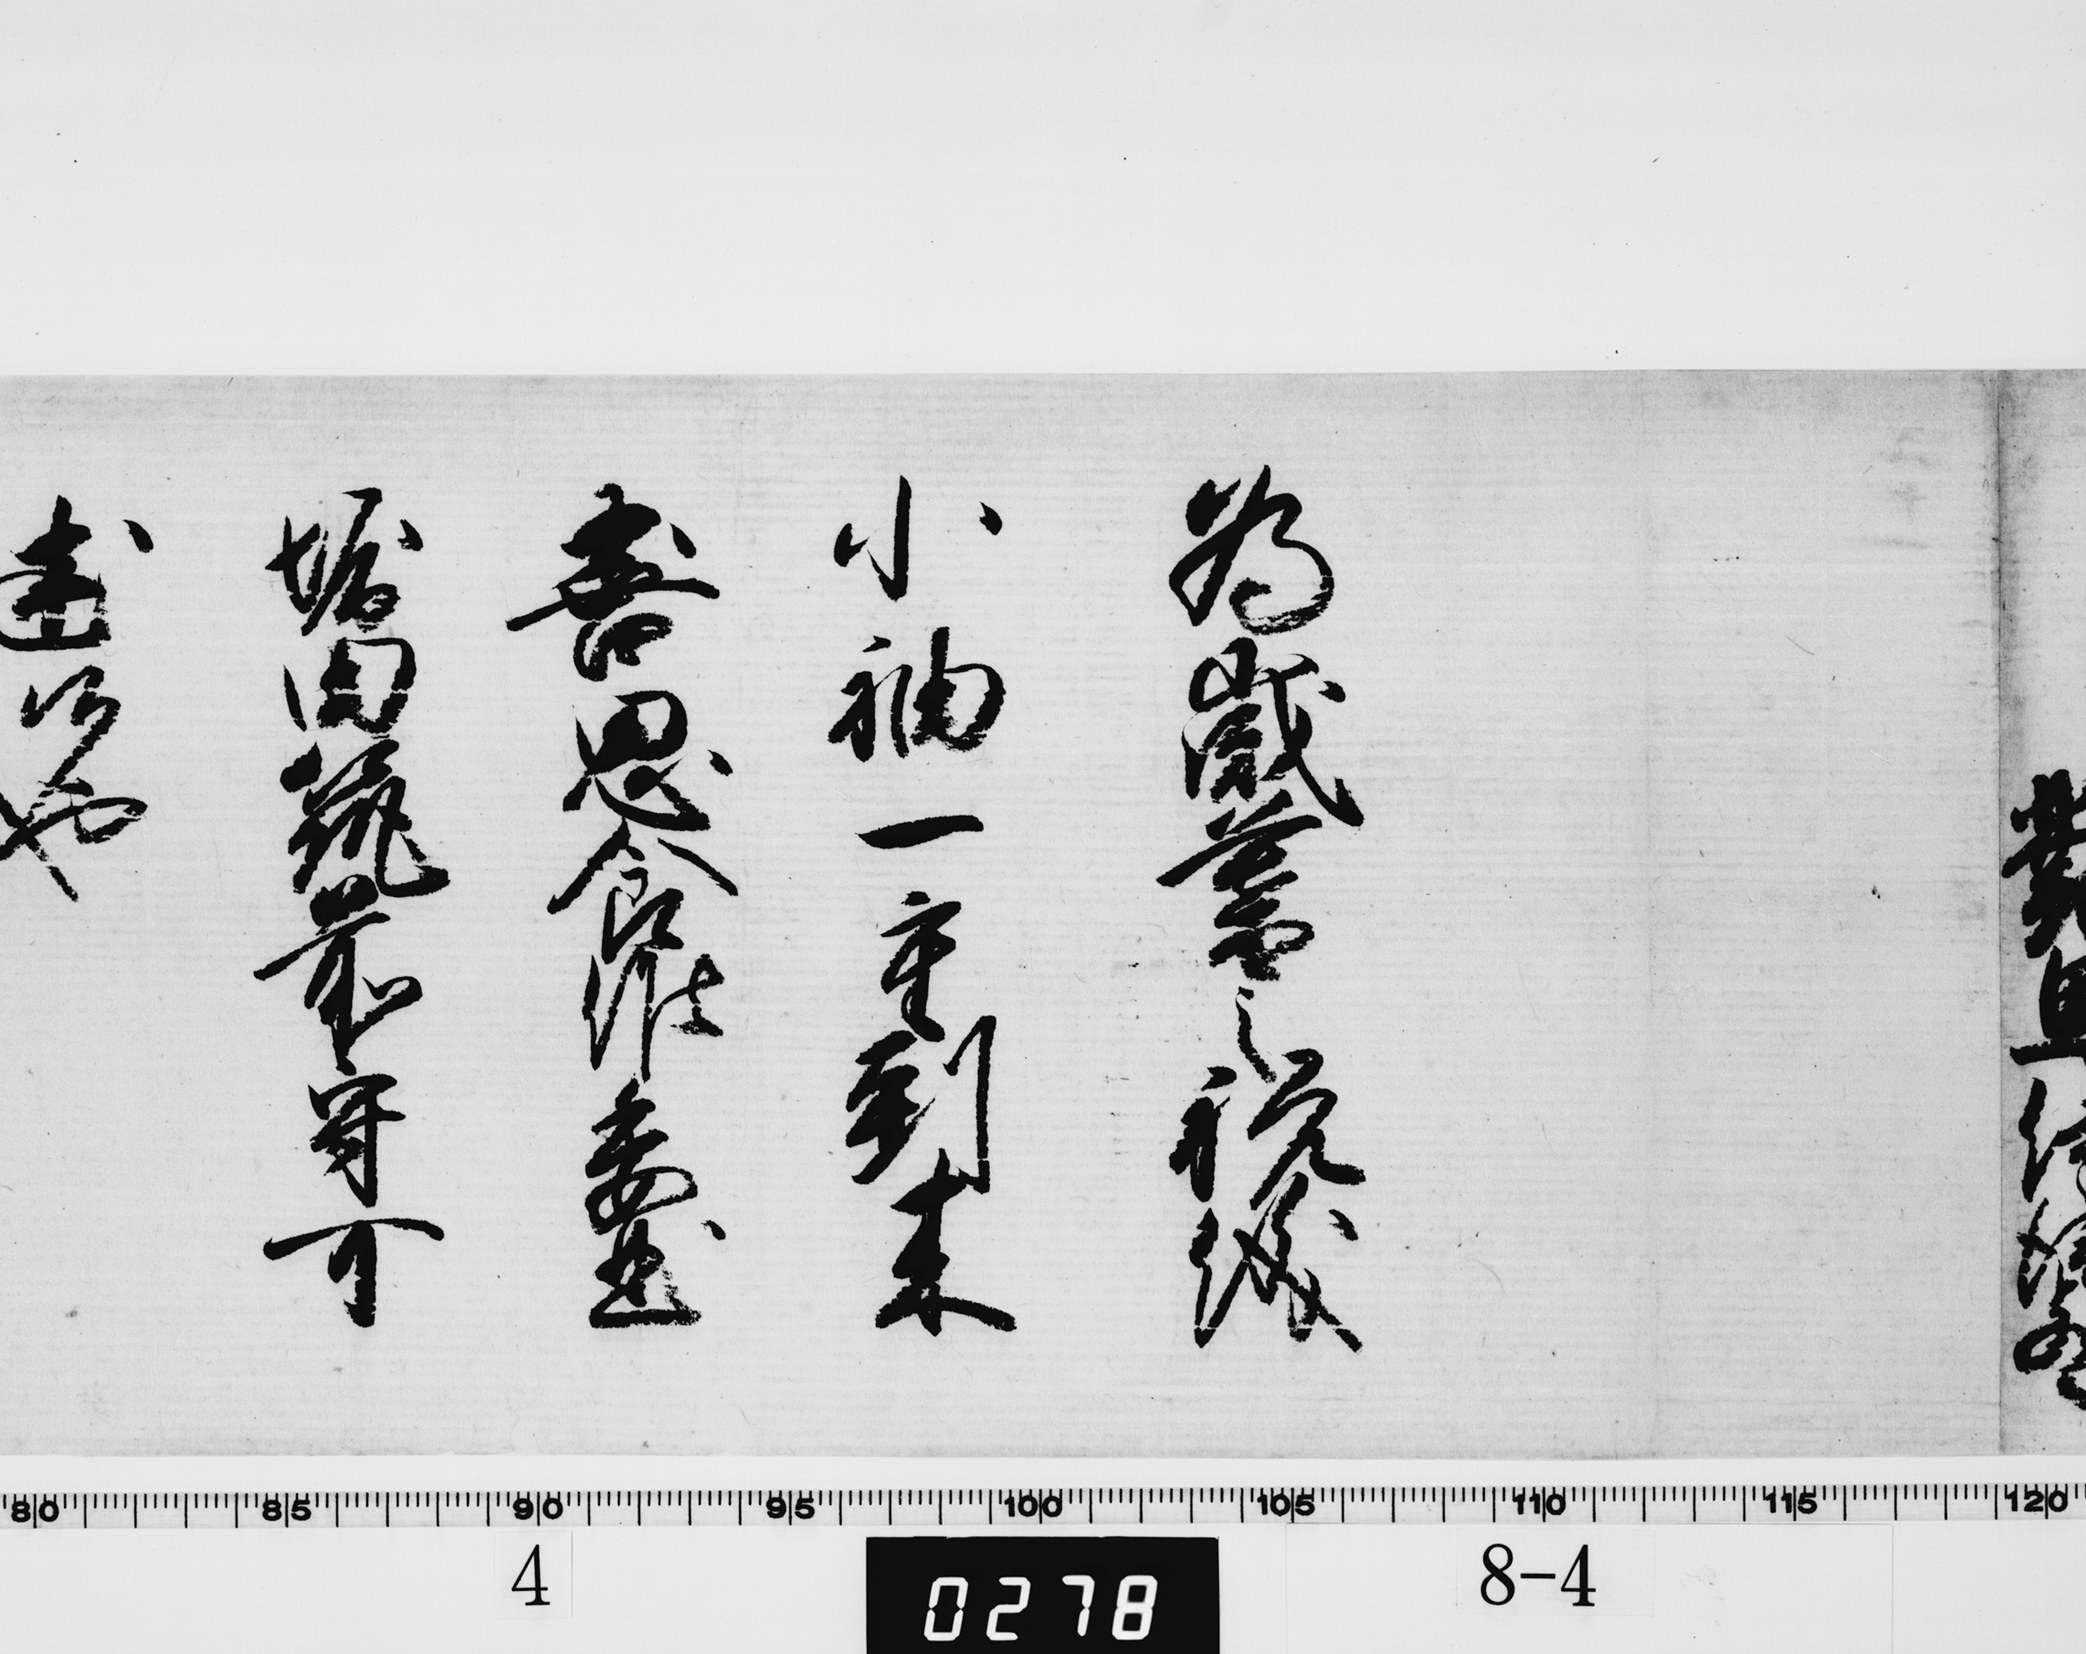 為歳暮之祝儀
小袖一重到来
喜思食候委曲
堀田筑前守可
述候也
80 85 90 95 100 105 110 115 120
4
0278
8-4